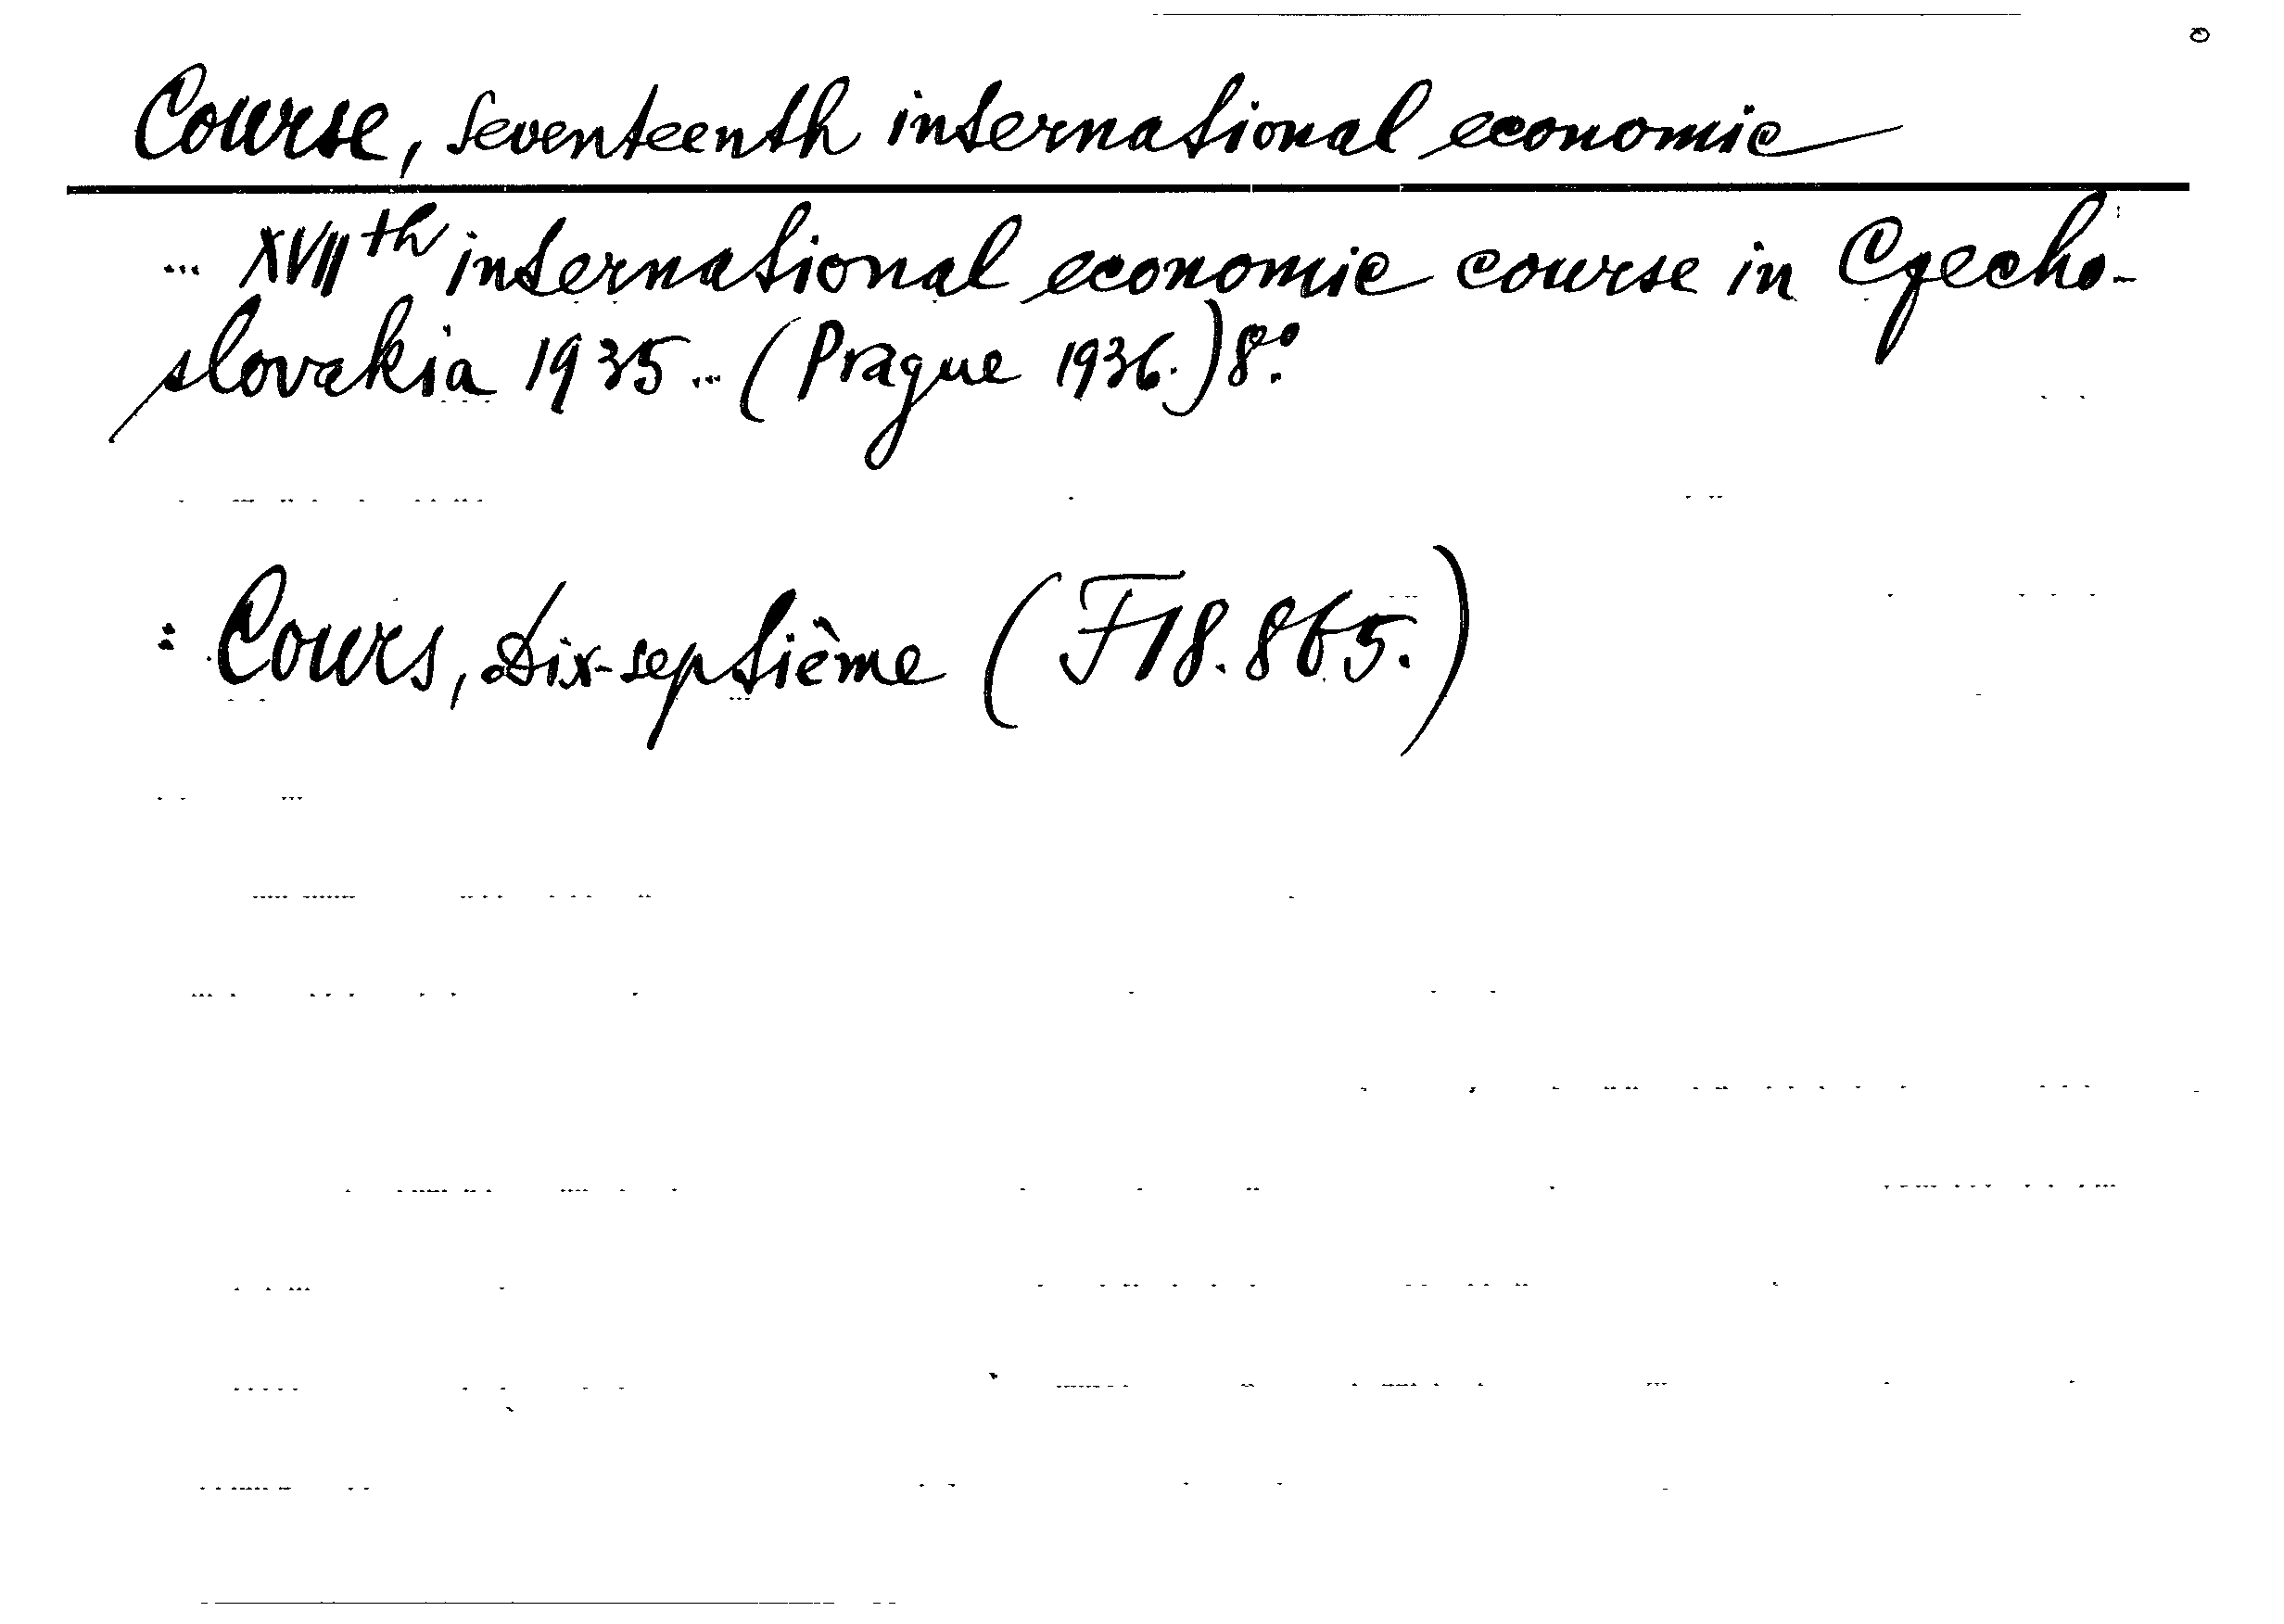 Course, seventeenth international economic
... XVIIth international economic course in Czecho-
slovakia 1935... (Prague 1936.) 8º.
: Cours, Dix-septième (F 18.865.)